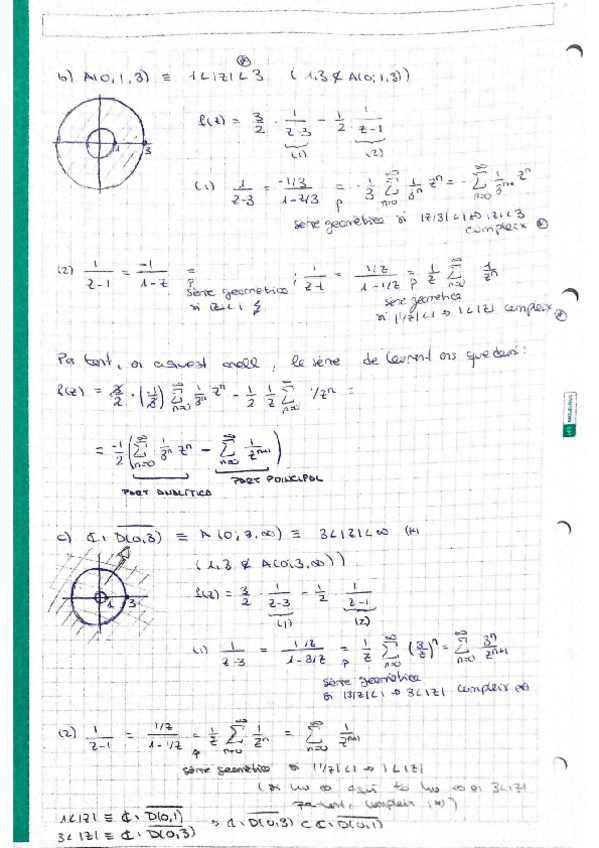 (*)
b) A(0,1,3) ≡ 1<|z|<3 (1,3 ∉ A(0,1,3))
3
f(z) = 3/2 · 1/(z-3) - 1/2 · 1/(z-1)
(1) (2)
(1) 1/(z-3) = (-1/3)/(1-z/3) = -1/3 ∑_{n=0}^{∞} 1/3^n z^n = -∑_{n=0}^{∞} 1/3^{n+1} z^n
p
sèrie geomètrica si |z/3|<1 ⇔ |z|<3
compleix (*)
(2) 1/(z-1) = -1/(1-z) = ; 1/(z-1) = (1/z)/(1-1/z) = 1/z ∑_{n=0}^{∞} 1/z^n
p p
sèrie geomètrica sèrie geomètrica
si |z|<1 si |1/z|<1 → 1<|z| compleix (*)
Per tant, en aquest anell, la sèrie de Laurent ens quedarà:
f(z) = 3/2 · (-1/3) ∑_{n=0}^{∞} 1/3^n z^n - 1/2 1/z ∑_{n=0}^{∞} 1/z^n =
= -1/2 (∑_{n=0}^{∞} 1/3^n z^n - ∑_{n=0}^{∞} 1/z^{n+1})
PART ANALÍTICA PART PRINCIPAL
c) ℂ∖D(0,3) ≡ A(0,3,∞) ≡ 3<|z|<∞ (*)
(1,3 ∉ A(0,3,∞))
1 3
f(z) = 3/2 · 1/(z-3) - 1/2 · 1/(z-1)
(1) (2)
(1) 1/(z-3) = (1/z)/(1-3/z) = 1/z ∑_{n=0}^{∞} (3/z)^n = ∑_{n=0}^{∞} 3^n/z^{n+1}
p
sèrie geomètrica
si |3/z|<1 → 3<|z| compleix (*)
(2) 1/(z-1) = (1/z)/(1-1/z) = 1/z ∑_{n=0}^{∞} 1/z^n = ∑_{n=0}^{∞} 1/z^{n+1}
p
sèrie geomètrica si |1/z|<1 → 1<|z|
3<|z|
per tant, compleix (*))
1<|z| ≡ ℂ∖D(0,1)
3<|z| ≡ ℂ∖D(0,3) → ℂ∖D(0,3) ⊂ ℂ∖D(0,1)